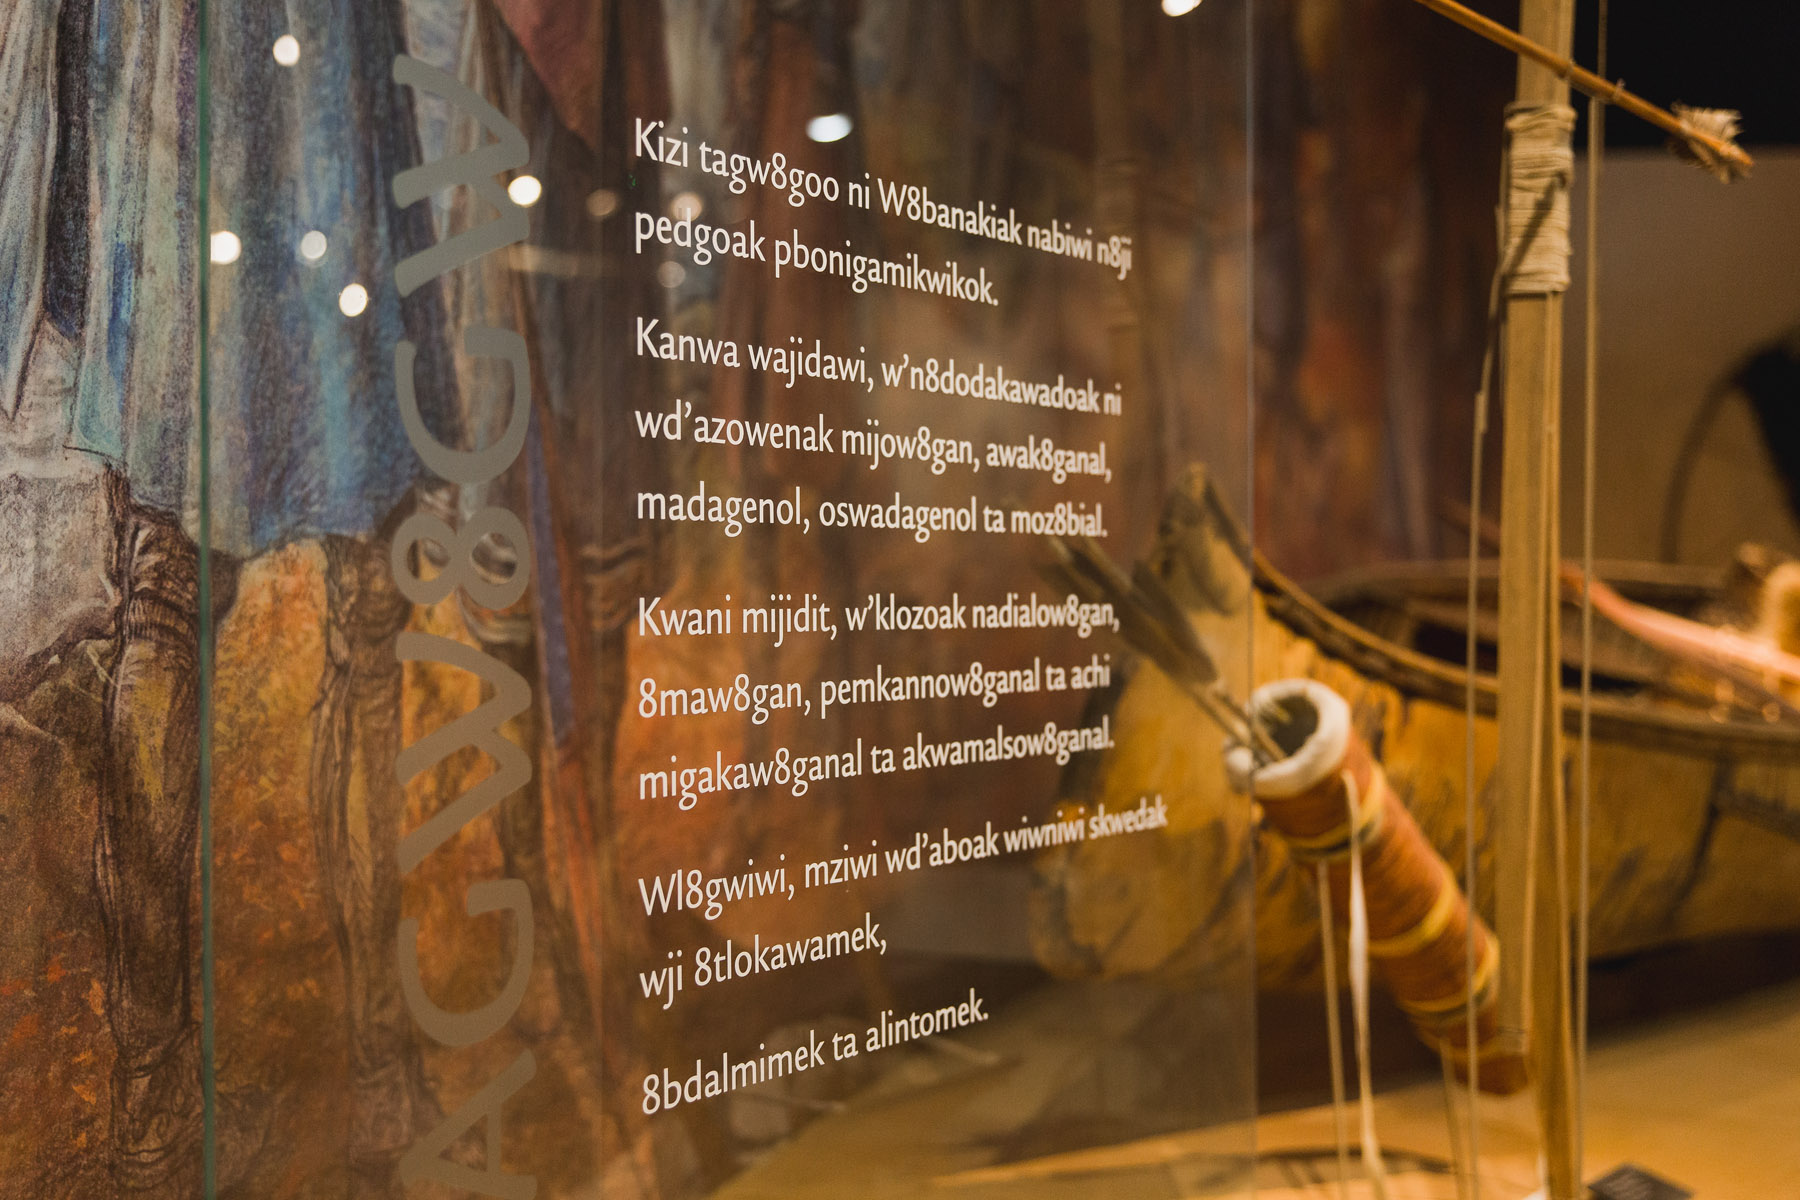 AGW8GW
Kizi tagw8goo ni W8banakiak nabiwi n8ji
pedgoak pbonigamikwikok.
Kanwa wajidawi, w’n8dodakawadoak ni
wd’azowenak mijow8gan, awak8ganal,
madagenol, oswadagenol ta moz8bial.
Kwani mijidit, w’klozoak nadialow8gan,
8maw8gan, pemkannow8ganal ta achi
migakaw8ganal ta akwamalsow8ganal.
Wl8gwiwi, mziwi wd’aboak wiwniwi skwedak
wji 8tlokawamek,
8bdalmimek ta alintomek.